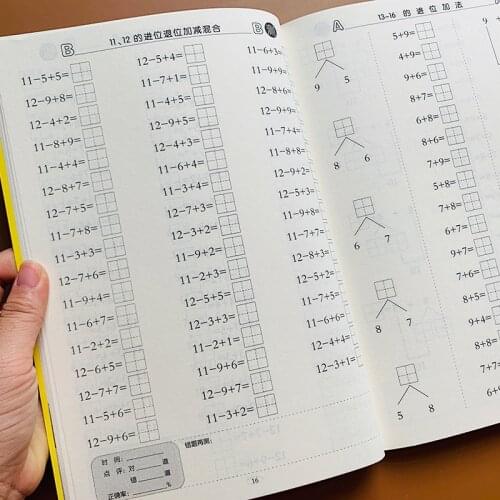 B
11、12 的进位退位加减混合
B
11-5+5=
12-9+8=
12-4+2=
11-8+9=
11-4+4=
12-8+7=
12-7+5=
11-7+8=
11-3+3=
12-7+6=
11-9+4=
11-6+7=
11-2+2=
12-6+5=
12-7+7=
11-5+6=
12-9+6=
12-5+4=
11-7+1=
11-4+5=
12-9+5=
12-4+3=
11-6+4=
11-3+4=
12-7+3=
12-3+2=
11-9+2=
11-2+3=
12-5+5=
12-3+3=
11-2+1=
11-9+6=
12-9+7=
11-3+2=
11-6+3=
11-9+9=
12-8+6=
12-9+9=
11-7+4=
11-8+8=
12-9+2=
12-5+3=
11-9+8=
11-7+7=
12-8+3=
12-5+2=
11-7+5=
11-6+6=
12-4+4=
12-3+1=
时 间：
点 评：对 道
错 道
正确率： %
错题再测：
16
A
13-16 的 进 位 加 法
9 5
8 6
6 7
8 7
5 8
5+9=
4+9=
9+6=
8+7=
6+8=
8+6=
7+9=
5+8=
7+8=
6+7=
9+7=
7+6=
8+5=
9+4=
8+8=
7+7=
6+9=